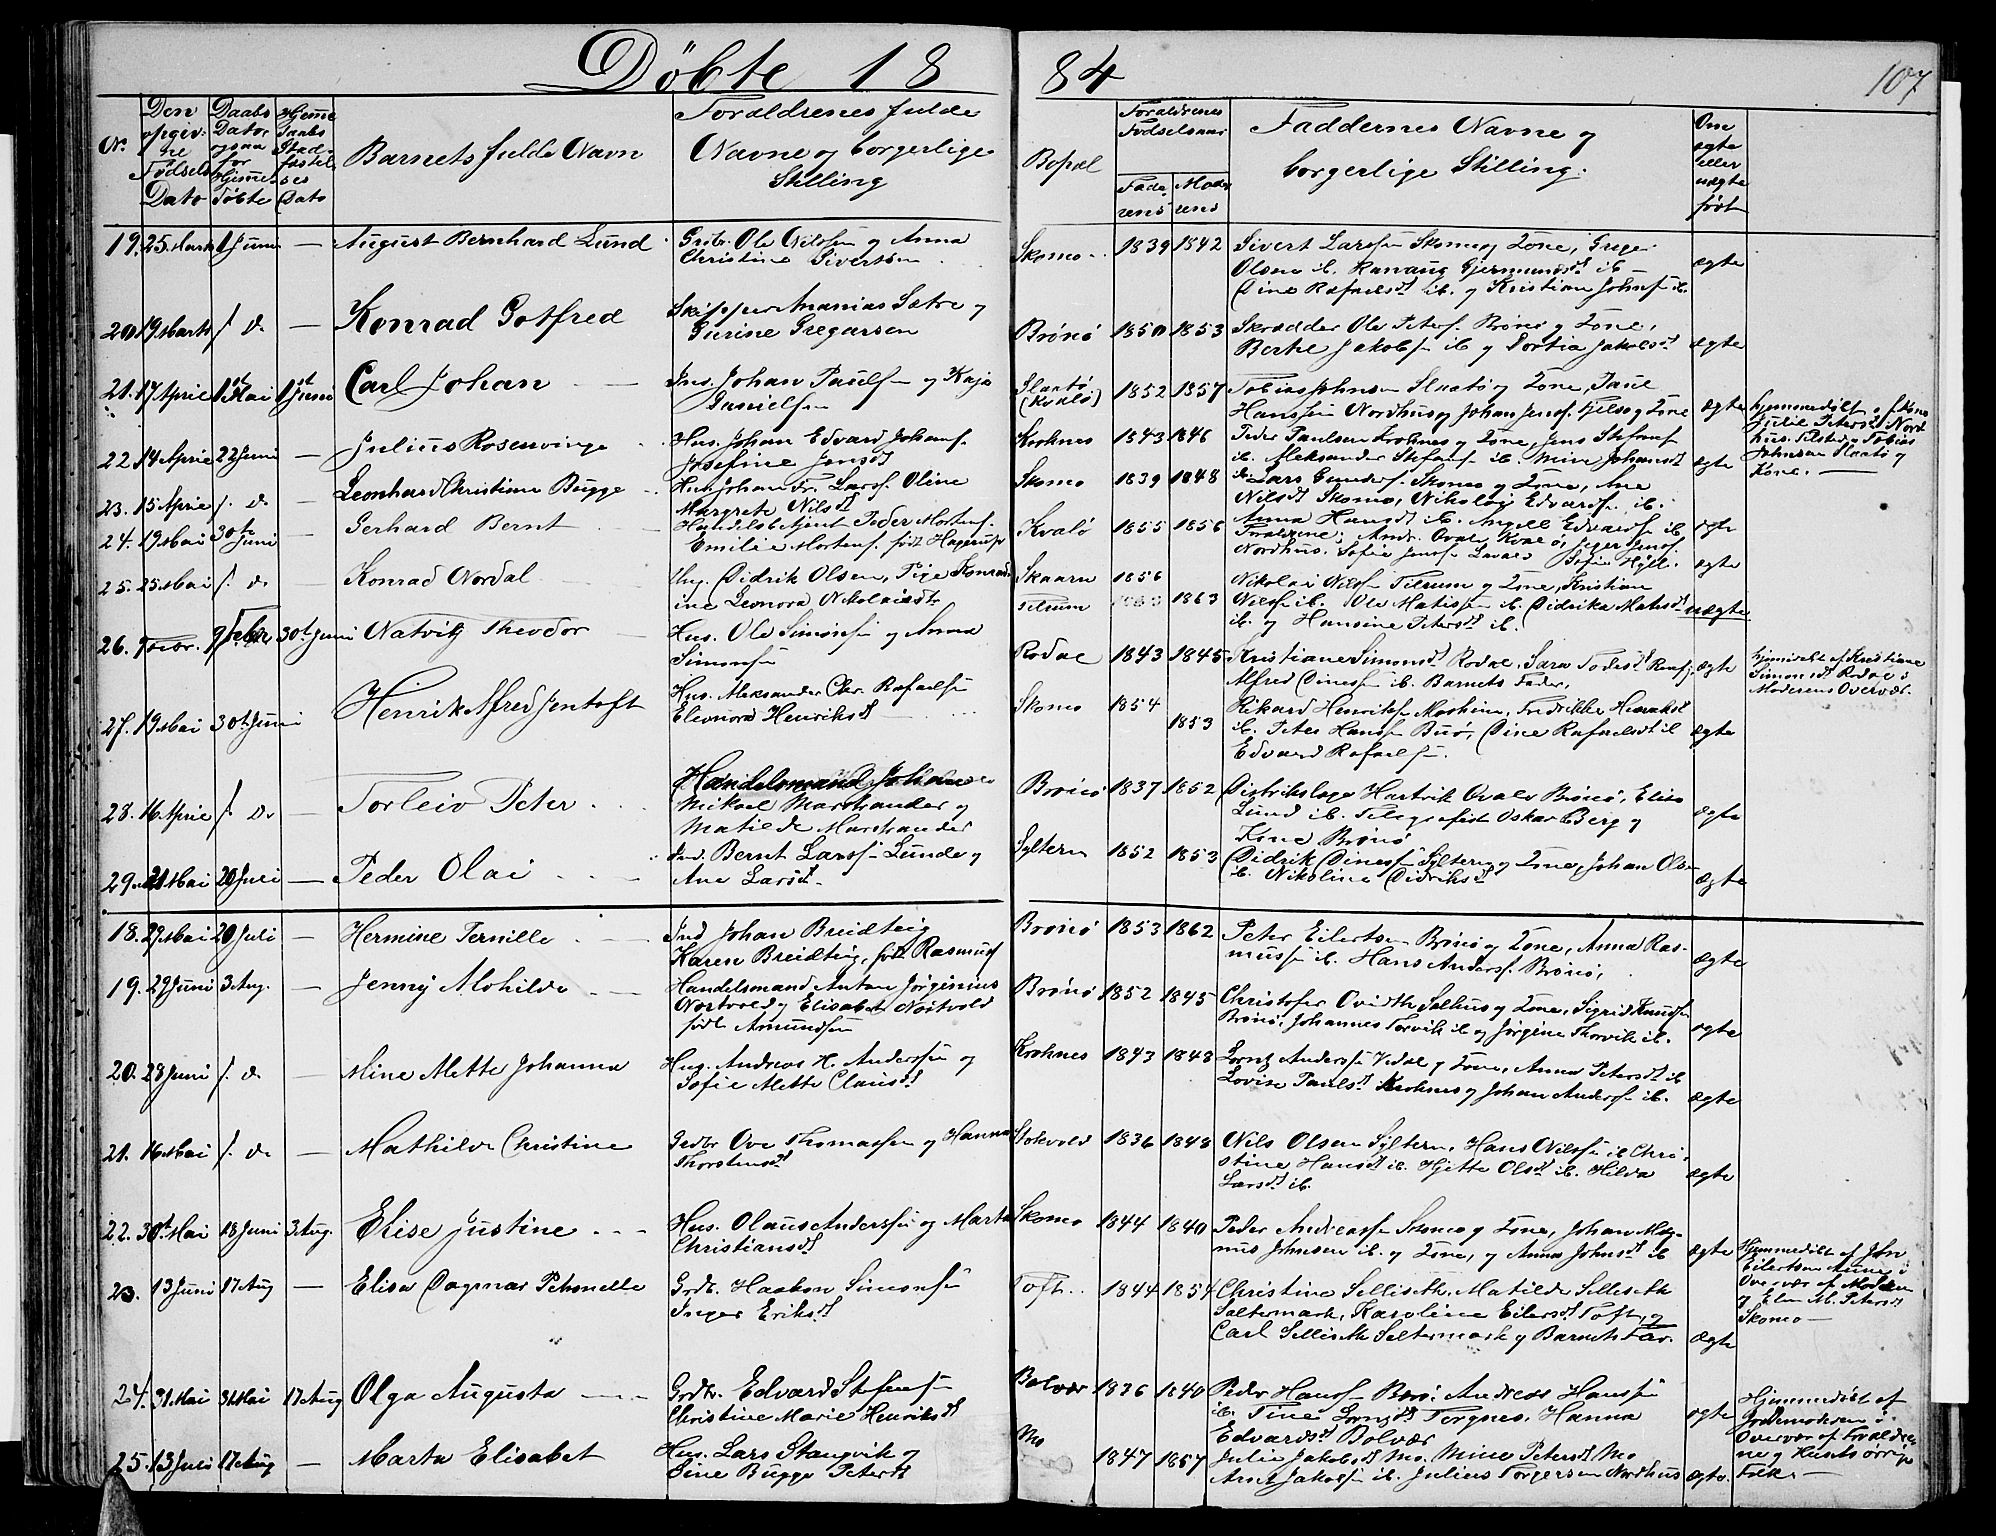 Döbte 18 84
107
No.
Den opgivne Fødsels Dato
Daabs Dator ogsaa for Hjemme Døbte
Hjemme Daabs Stadfæstelses Dato
Barnets fulde Navn
Forældrenes fulde Navne og borgerlige Stilling
Bopæl
Forældrenes Fødselsaar
Faderens
Moderens
Faddernes Navne og borgerlige Stilling.
Om ægte eller uægte født
19. 25 Marts 1 Juni — August Bernhard Lund
Grdbr. Ole Nilssen og Anna
Christine Sivertsen
Skomo 1839 1842
Sivert Larssen Skomo og Kone,
Olsen ib.
Dine Rafaelsdt ib. og Kristian Johnsen ib.
ægte
20. 19 Marts s. D. — Konrad Gotfred
Skipper Ananias Sætre og
Gurine Gregersen
Brönö 1850 1853
Skrædder Ole Peters. Brönö og Kone,
Berthe Jakobs. ib og Jakobsdt
ægte
21. 17 April 1st Mai 1st Juni Carl Johan
Ins. Johan Paulsen og Kaja
Danielsen
Slaatö (Kvalö) 1852 1857
Tobias Johnsen Slaatö og Kone, Paul
Hanssen Nordhus og Johan Jens. og Kone
ægte
hjemmedöbt af
Julie Petersdt Nord
hus. Tilsted. Tobias
Johnsen Slaatö og
Kone. —
22. 14 April 22 Juni — Julius Rosenvinge
Hus. Johan Edvard Johans.
Josefine Jensdt
Krohnes 1843 1846
Peder Paulsen Krohnes og Kone, Jens Stefans.
ib. Aleksander Stefans. ib. Mine Johansdt
ib.
ægte
23. 15 April s. D. — Leonhard Christian Bugge
Hus. Johan Fr. Lars. Oline
Margrete Nilsdt
Skomo 1839 1848
Lars Skomo og Kone, Ane
Nilsdt Skomo, Nikolai Edvards. ib.
Anna Hansdt ib. Angell Edvards. ib
ægte
24. 19 Mai 30t Juni — Gerhard Bernt
Handelsbetjent Peder Mortens.
Emilie Mortens. født Hagerup
Kvalö 1855 1856
Forældrene, Andr. Qvale Kvalö, Jens.
Nordhus. Sofie Jens.
ægte
25. 25 Mai s. D. — Konrad Nordal
Ung. Didrik Olsen, Pige Konrad
ine Leonora Nikolaisdt.
Skaarn 1856
Tilrum 1863
Nikolai Nilss. Tilrum og Kone, Kristian
Nilss. ib. Ole Matissen ib. Didrika Matisdt
ib. og Hansine Petersdt ib.
uægte
26. 9 Febr. 30t Juni Natvig Theodor
Hus. Ole Simonsen og Anna
Simonsen
Rodal 1843 1845
Kristiane Simonsdt Rodal, Sara
Alfred Dinessen ib. Barnets Fader,
ægte
hjemmedöbt af Kristiane
Simonsdt Rodal i
Moderens Overvær.
27. 19 Mai 30t Juni Henrik Alfred Jentoft
Hus. Aleksander Chr. Rafaelsen
Eleonora Henriksdt
Skomo 1854 1853
Rikard Henriksen Fredrikke Henriksdt
ib. Peter Hansen Buö, Dine Rafaelsdt ib
Edvard Rafaelsen.
ægte
28. 16 April s. D. — Torleiv Peter
Handelsmand Johan
Mikael Marstrander og
Matilde Marstrander
Brönö 1837 1852
Distriktslæge Hartvik Qvale Brönö, Elise
Lund ib. Telegrafist Oskar Berg og
Kone Brönö
ægte
29. 21 Mai 20 Juli — Peder Olai
Ind. Bernt Larss. Lunde og
Ane Larsdt.
Sÿltern 1852 1853
Didrik Dinessen Sÿltern og Kone, Johan Ols.
ib. Nikoline Didriksdt
ægte
18. 29 Mai 20 Juli — Hermine Pernille
Ind Johan Breidteig
Karen Breidteig, født Rasmus.
Brönö 1853 1862
Peter Eilertsen Brönö og Kone, Anna Ras-
mussen ib. Hans Anders. Brönö,
ægte
19. 29 Juni 3 Aug. — Jenny Alohilde
Handelsmand Anton Jörginius
Nostvold og Elisabet Nöstvold
født Amundsen
Brönö 1852 1845
Christofer Qvidth Salhus og Kone, Sigrid Knudsen
Brönö, Johannes Torvik ib og Jørgine Thorvik ib.
ægte
20. 28 Juni s. D. — Mine Mette Johanna
Hus. Andreas H. Anderssen og
Sofie Mette Clausdt
Krohnes 1843 1848
Lorntz Anderssen Vedal og Kone, Anna Petersdt ib
Lovise Paulsdt Krohnes og Johan Anders. ib.
ægte
21. 16 Mai s. D. — Mathilde Christine
Grdbr Ove Thomassen og Hanna
Thorstensdt
Stokvold 1836 1848
Nils Olsen Sÿltern, Hans Nilssen ib Chri-
stine Hansdt ib. Mette Olsdt ib. Hilda
Larsdt ib.
ægte
22. 30t Mai 18 Juni 3 Aug. Elise Justine
Hus. Olaus Anderssen og Marta
Christiansdt
Skomo 1844 1840
Peder Andreass. Skomo og Kone, Johan Mag-
nus Johnsen ib. og Kone, og Anna Johnsdt ib
ægte
Hjemmedöbt af John
Eilertsen i
Overvær af Moderen
og Elen M. Petersdt
Skomo —
23. 13 Juni 17 Aug — Elisa Dagmar Petronelle
Grdb. Haakon Simonsen
Inger Eriksdt
Toft 1844 1854
Christine Selliseth, Matilde Selliseth
Saltermark, Karoline Eilersdt Toft, og
Carl Selliseth Saltermark og Barnets Far.
ægte
24. 31 Mai 31 Mai 17 Aug Olga Augusta
Grdbr. Edvard Stefensen
Christine Marie Henriksdt
Bolvær 1836 1840
Peder Hanssen Andreas Hanssen
ib. Tine Lorntsdt Torgnes, Hanna
Edvardsdt Bolvær
ægte
Hjemmedöbt af
Jordemoderen i
Overvær af Forældre-
ne og Husets øvrige
Folk. —
25. 13 Juli 17 Aug — Marta Elisabet
Hus. Lars Stangvik og
Sine Bugge Petersdt
Mo 1847 1857
Julie Jakobsdt Mo. Mine Petersdt Mo
Arnt Jakobsen ib. Julius Torgersen Nordhus
ægte.